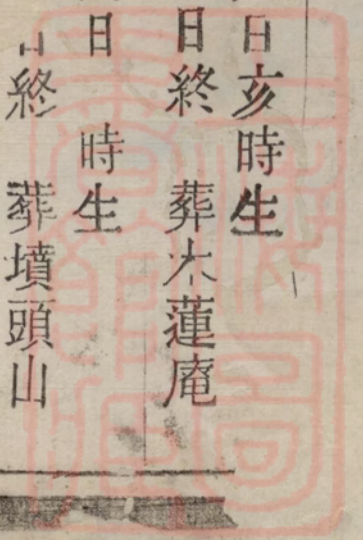 日亥時生
日終 葬木蓮庵
日 時生
日終 葬墳頭山